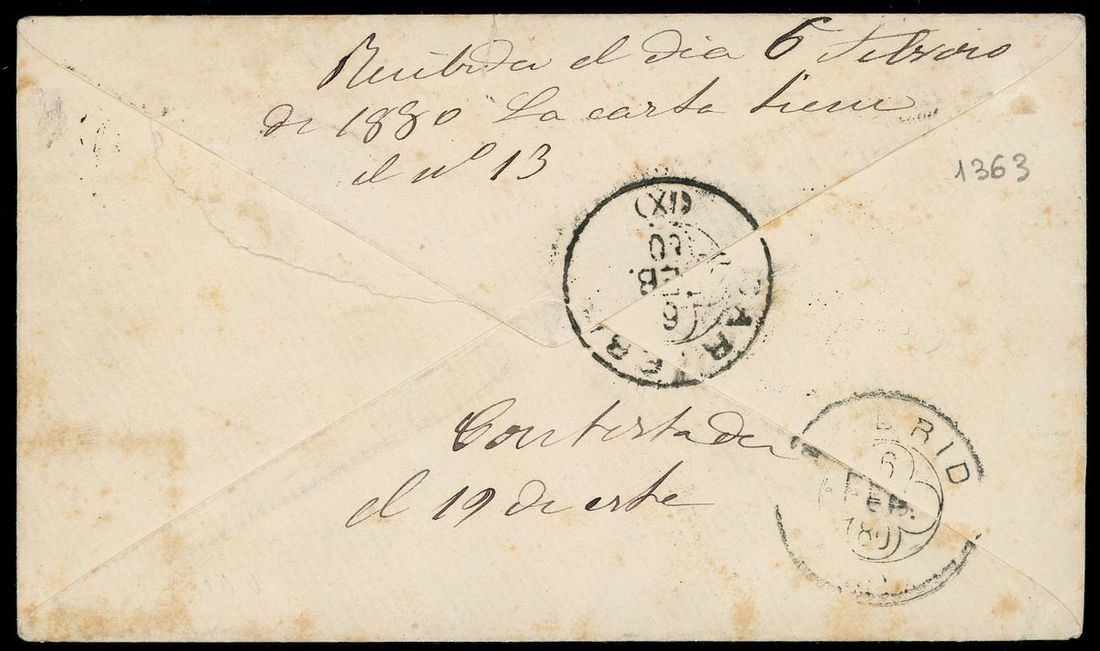 Recibida el dia 6 Febrero
de 1880 La carta tiene
el nº 13
1363
(IX)
80
FEB.
6
Contestada
el 19 de este
RID
6
FEB.
80